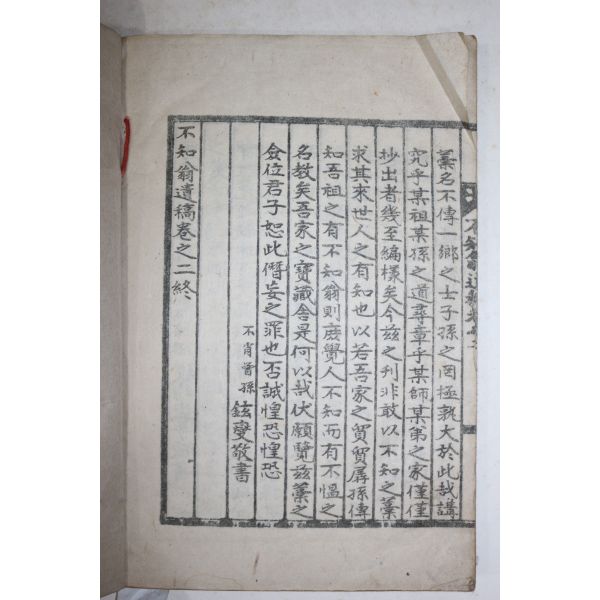 藁名不傳一鄉之士子孫之罔極孰大於此哉講
究乎某祖某孫之道尋章乎某師某弟之家僅僅
抄出者幾至編樣矣今玆之刋非敢以不知之藁
求其來世人之有知也以若吾家之貿貿孱孫傳
知吾祖之有不知翁則庶覺人不知而有不慍之
名敎矣吾家之寶藏舍是何以哉伏願覽玆藁之
僉位君子恕此僭妄之罪也否誠惶恐惶恐
不肖曾孫 鉉燮敬書
不知翁遺稿卷之二終
不知翁遺稿卷之二